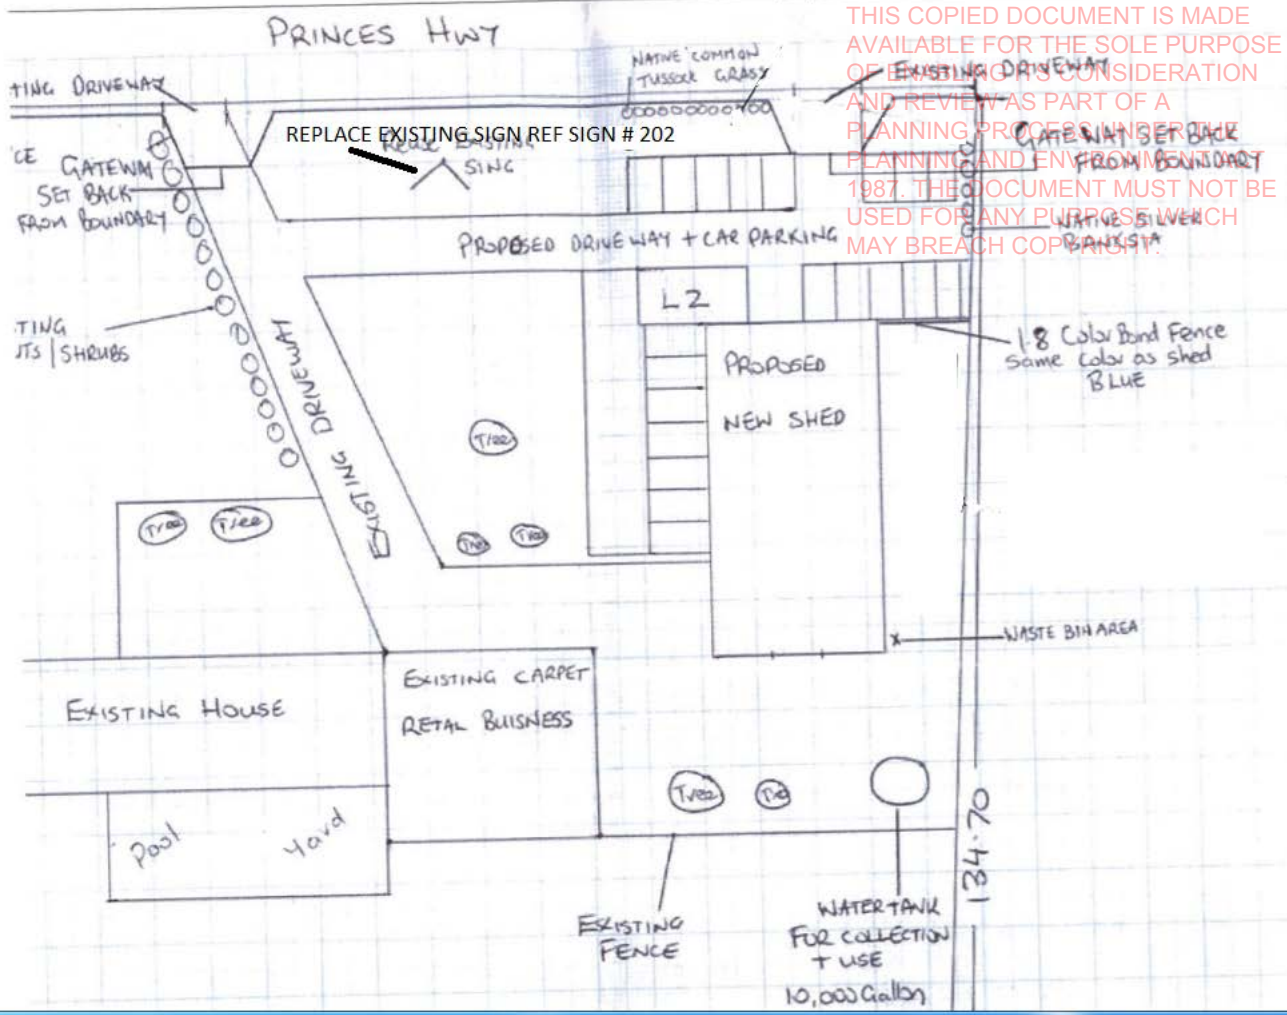 PRINCES HWY
THIS COPIED DOCUMENT IS MADE
AVAILABLE FOR THE SOLE PURPOSE
OF ENABLING ITS CONSIDERATION
AND REVIEW AS PART OF A
PLANNING PROCESS UNDER THE
PLANNING AND ENVIRONMENT ACT
1987. THE DOCUMENT MUST NOT BE
USED FOR ANY PURPOSE WHICH
MAY BREACH COPYRIGHT.
TING DRIVEWAY
NATIVE COMMON
TUSSOCK GRASY
EXISTING DRIVEWAY
REPLACE EXISTING SIGN REF SIGN # 202
REUSE EXISTING
SING
CE GATEWAY
SET BACK
FROM BOUNDARY
GATEWAY SET BACK
FROM BOUNDARY
NATIVE SILVER
BANKSIA
PROPOSED DRIVEWAY + CAR PARKING
L2
TING
UTS | SHRUBS
EXISTING DRIVEWAY
1.8 Color Bond Fence
Same Color as shed
BLUE
PROPOSED
NEW SHED
Tree
Tree
Tree
Tree
Tree
WASTE BIN AREA
EXISTING HOUSE
EXISTING CARPET
RETAL BUISNESS
Tree
Tre
Pool
Yard
134.70
EXISTING
FENCE
WATER TANK
FOR COLLECTION
+ USE
10,000 Gallon